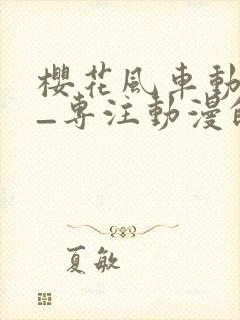 櫻花風車動
_專注動漫的
夏敏